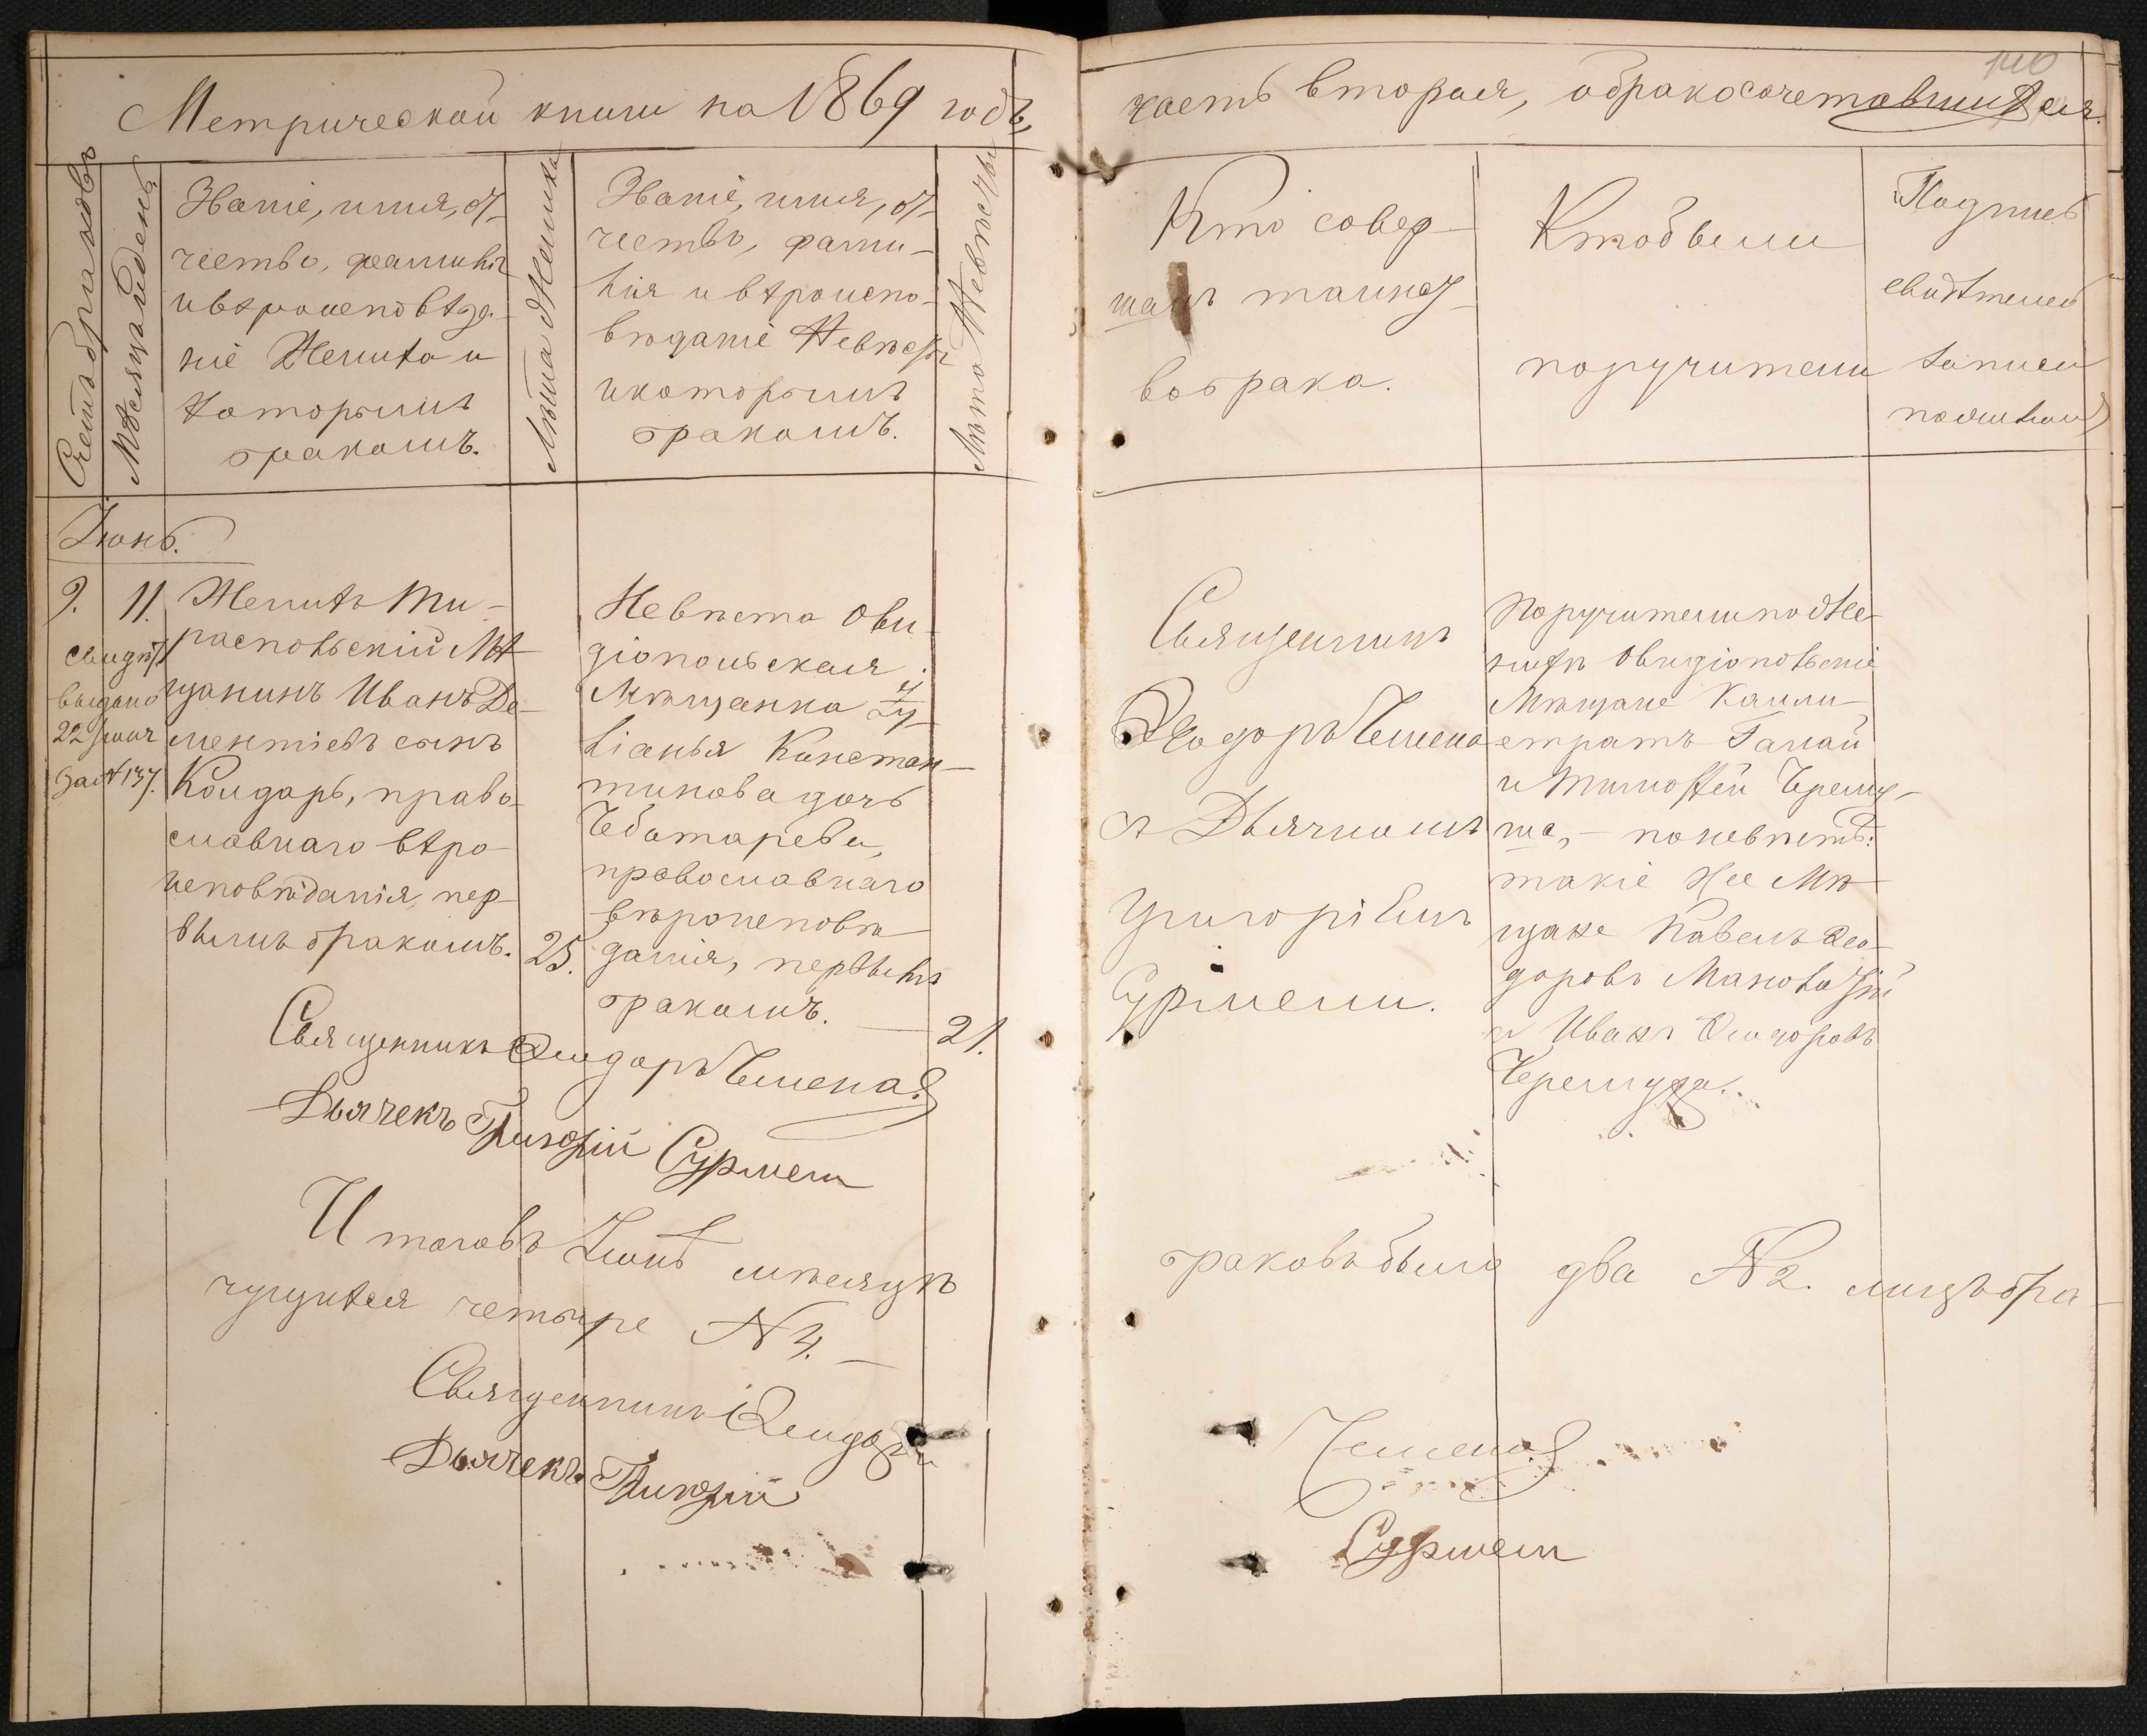 140
Метрической книги на 1869 годъ,
часть вторая, о бракосочетавшихся.
Счетъ браковъ
Мѣсяцъ и день
Званіе, имя, от-
чество, фамилія
и вѣроисповѣда-
ніе Жениха и
которымъ
бракомъ.
Лѣта Жениха
Званіе, имя, от-
чество, фами-
лія и вѣроиспо-
вѣданіе Невѣсты
и которымъ
бракомъ.
Лѣта Невѣсты
Кто совер-
шалъ таинст-
во брака.
Кто были
поручители
Подпись
свидѣтелей
записи
по желанію
Іюнь.
9.
11.
Свидѣт
выдано
22 Іюня
за № 137.
Женихъ Ти-
распольскій Мѣ-
щанинъ Иванъ Де-
ментіевъ сынъ
Кондарь, право-
славнаго вѣро-
исповѣданія, пер-
вымъ бракомъ.
25.
Невѣста Ови-
діопольская
Мѣщанка Іу-
ліанья Констан-
тинова дочь
Чеботарева,
православнаго
вѣроисповѣ-
данія, первымъ
бракомъ.
21.
Священникъ
Ѳеодоръ Чемена
съ Дьячкомъ
Григоріемъ
Сурмели.
Поручители по Же-
нихѣ Овидіопольскіе
Мѣщане Кали-
стратъ Гамай
и Тимоѳей Черему-
ша, – по невѣстѣ:
такіе же Мѣ-
щане Павелъ Ѳео-
доровъ Маковскій
и Иванъ Ѳеодоровъ
Черемуха.
Священникъ Ѳеодоръ Чемена
Дьячекъ Григорій Сурмели
Итого въ Іюнѣ мѣсяцѣ
браковъ было два № 2. лицъ бра-
чущихся четыре № 4.
Священникъ Ѳеодоръ
Чемена
Дьячекъ Григорій
Сурмели